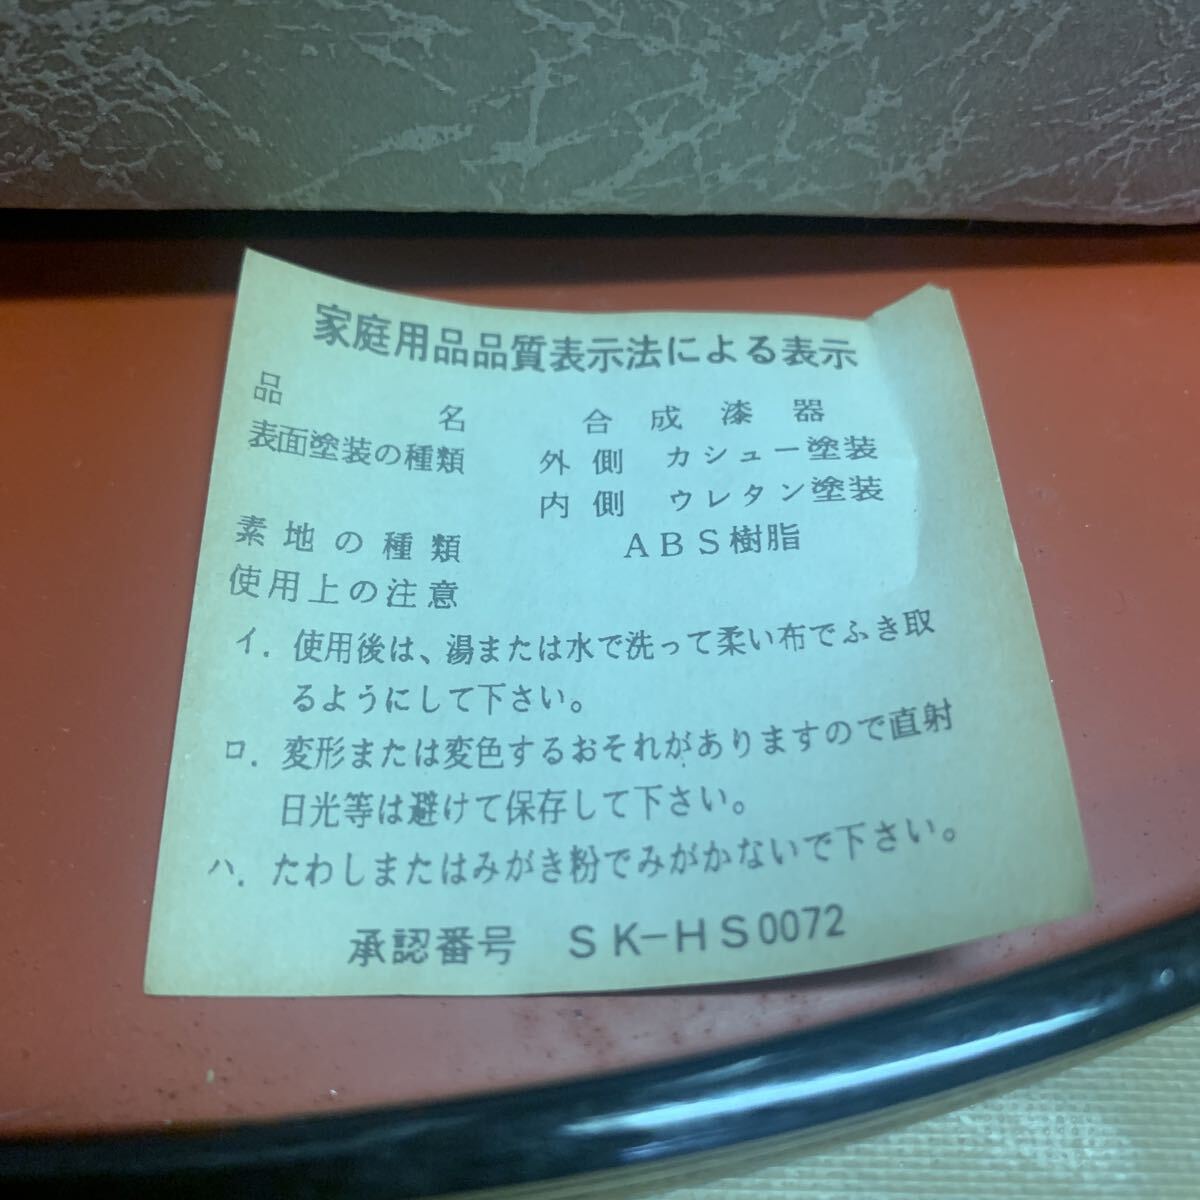 家庭用品品質表示法による表示
品名 合成漆器
表面塗装の種類 外側 カシュー塗装
内側 ウレタン塗装
素地の種類 ABS樹脂
使用上の注意
イ. 使用後は、湯または水で洗って柔い布でふき取
るようにして下さい。
ロ. 変形または変色するおそれがありますので直射
日光等は避けて保存して下さい。
ハ. たわしまたはみがき粉でみがかないで下さい。
承認番号 SK-HS0072